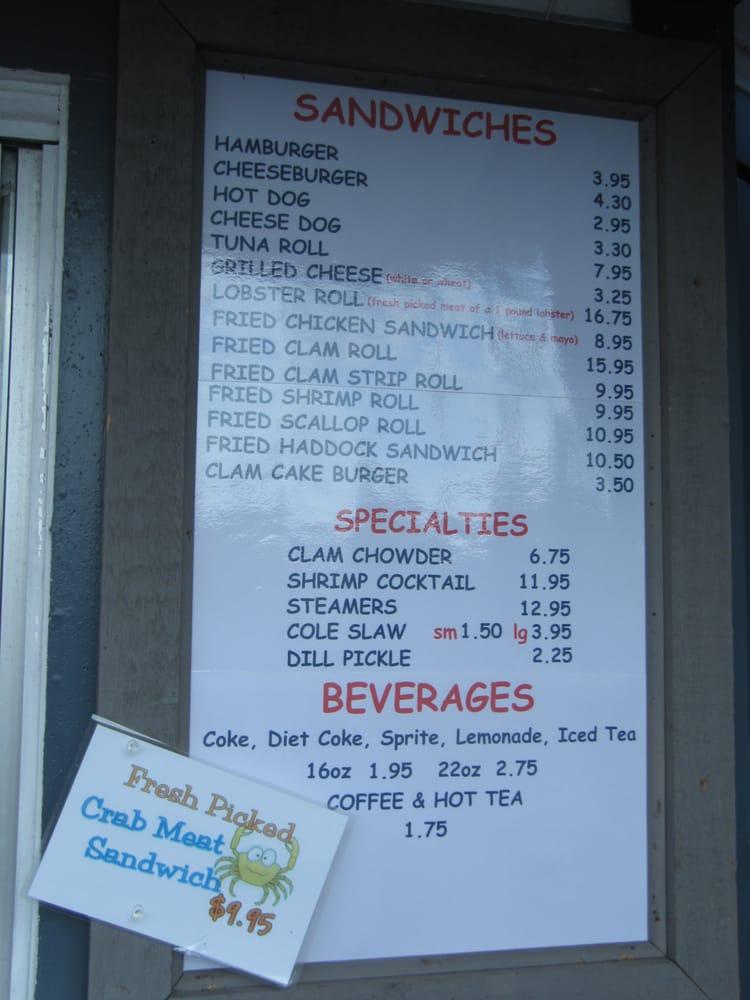 SANDWICHES
HAMBURGER 3.95
CHEESEBURGER 4.30
HOT DOG 2.95
CHEESE DOG 3.30
TUNA ROLL 7.95
GRILLED CHEESE (white or wheat) 3.25
LOBSTER ROLL (fresh picked meat of a 1 pound lobster) 16.75
FRIED CHICKEN SANDWICH (lettuce & mayo) 8.95
FRIED CLAM ROLL 15.95
FRIED CLAM STRIP ROLL 9.95
FRIED SHRIMP ROLL 9.95
FRIED SCALLOP ROLL 10.95
FRIED HADDOCK SANDWICH 10.50
CLAM CAKE BURGER 3.50
SPECIALTIES
CLAM CHOWDER 6.75
SHRIMP COCKTAIL 11.95
STEAMERS 12.95
COLE SLAW sm 1.50 lg 3.95
DILL PICKLE 2.25
BEVERAGES
Coke, Diet Coke, Sprite, Lemonade, Iced Tea
16oz 1.95 22oz 2.75
COFFEE & HOT TEA
1.75
Fresh Picked
Crab Meat
Sandwich
$9.95